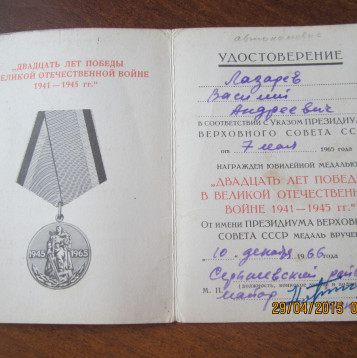 „ДВАДЦАТЬ ЛЕТ ПОБЕДЫ
ВЕЛИКОЙ ОТЕЧЕСТВЕННОЙ ВОЙНЕ
1941—1945 гг.“
1945 1965
УДОСТОВЕРЕНИЕ
Лазарев
Василий
Андреевич
В СООТВЕТСТВИИ С УКАЗОМ ПРЕЗИДИУ
ВЕРХОВНОГО СОВЕТА СС
от 7 мая 1965 года
НАГРАЖДЕН ЮБИЛЕЙНОЙ МЕДАЛЬЮ
„ДВАДЦАТЬ ЛЕТ ПОБЕД
В ВЕЛИКОЙ ОТЕЧЕСТВЕН
ВОЙНЕ 1941—1945 гг.
От имени ПРЕЗИДИУМА ВЕРХОВН
СОВЕТА СССР МЕДАЛЬ ВРУЧЕ
10 декабря 1966
М. П. (должность,
майор
29/04/2015 0